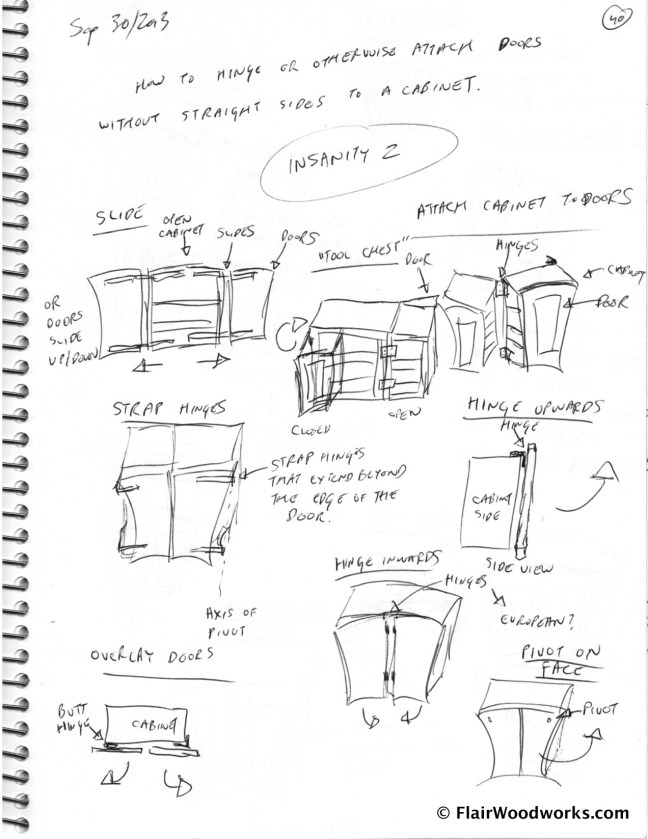 Sep 30/2013
40
HOW TO HINGE OR OTHERWISE ATTACH DOORS
WITHOUT STRAIGHT SIDES TO A CABINET.
INSANITY 2
SLIDE
OPEN
CABINET
SLIDES
DOORS
OR
DOORS
SLIDE
UP/DOWN
ATTACH CABINET TO DOORS
"TOOL CHEST"
DOOR
HINGES
CABINET
DOOR
CLOSED
OPEN
STRAP HINGES
STRAP HINGES
THAT EXTEND BEYOND
THE EDGE OF THE
DOOR.
AXIS OF
PIVOT
HINGE UPWARDS
HINGE
CABINET
SIDE
SIDE VIEW
HINGE INWARDS
HINGES
EUROPEAN?
OVERLAY DOORS
BUTT
HINGE
CABINET
PIVOT ON
FACE
PIVOT
© FlairWoodworks.com